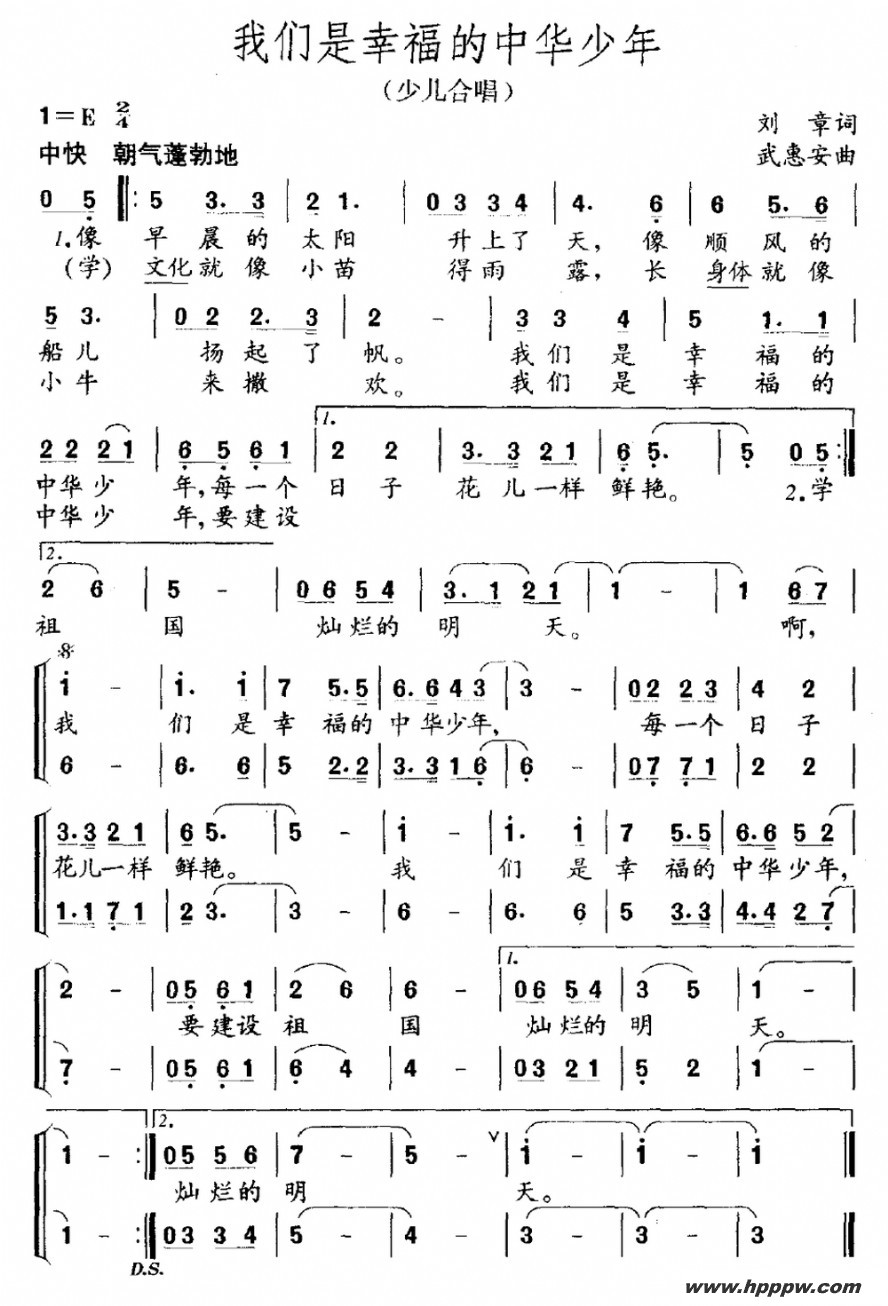 我们是幸福的中华少年
（少儿合唱）
1=E 2/4
刘 章词
中快 朝气蓬勃地
武惠安曲
0 5 ‖: 5 3. 3 | 2 1. | 0 3 3 4 | 4. 6 | 6 5. 6 |
1.像 早 晨 的 太 阳 升 上 了 天, 像 顺 风 的
(学) 文化 就 像 小 苗 得 雨 露, 长 身体 就 像
5 3. | 0 2 2. 3 | 2 - | 3 3 4 | 5 1. 1 |
船 儿 扬 起 了 帆。 我 们 是 幸 福 的
小 牛 来 撒 欢。 我 们 是 幸 福 的
1.
2 2 2 1 | 6 5 6 1 | 2 2 | 3. 3 2 1 | 6 5. | 5 0 5 :‖
中 华 少 年, 每 一 个 日 子 花 儿 一 样 鲜 艳。 2.学
中 华 少 年, 要 建 设
2.
2 6 | 5 - | 0 6 5 4 | 3. 1 2 1 | 1 - | 1 6 7 |
祖 国 灿 烂 的 明 天。 啊,
i - | i. i | 7 5. 5 | 6. 6 4 3 | 3 - | 0 2 2 3 | 4 2 |
我 们 是 幸 福 的 中 华 少 年, 每 一 个 日 子
6 - | 6. 6 | 5 2. 2 | 3. 3 1 6 | 6 - | 0 7 7 1 | 2 2 |
3. 3 2 1 | 6 5. | 5 - | i - | i. i | 7 5. 5 | 6. 6 5 2 |
花 儿 一 样 鲜 艳。 我 们 是 幸 福 的 中 华 少 年,
1. 1 7 1 | 2 3. | 3 - | 6 - | 6. 6 | 5 3. 3 | 4. 4 2 7 |
1.
2 - | 0 5 6 1 | 2 6 | 6 - | 0 6 5 4 | 3 5 | 1 - |
要 建 设 祖 国 灿 烂 的 明 天。
7 - | 0 5 6 1 | 6 4 | 4 - | 0 3 2 1 | 5 2 | 1 - |
2.
1 - :‖ 0 5 5 6 | 7 - | 5 - ∨ | i - | i - | i ‖
灿 烂 的 明 天。
1 - :‖ 0 3 3 4 | 5 - | 4 - | 3 - | 3 - | 3 ‖
D.S.
www.hpppw.com